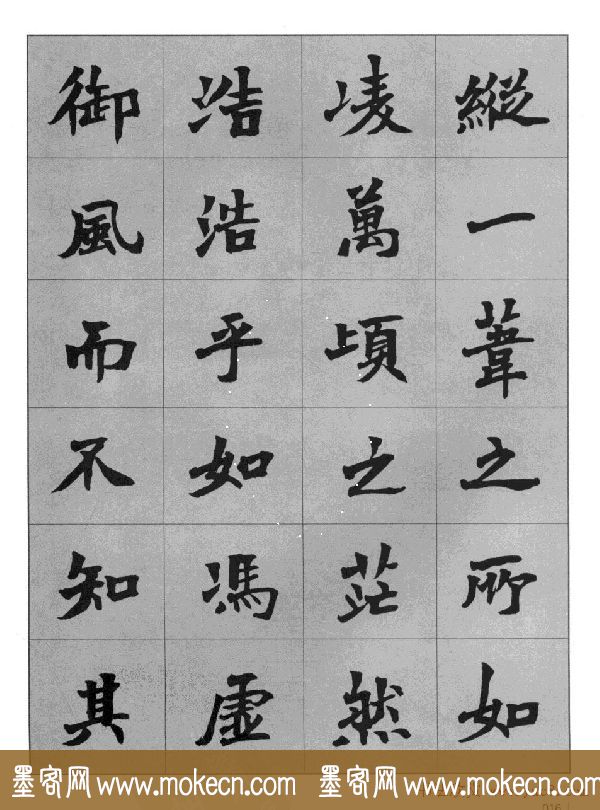 縱一葦之所如
凌萬頃之茫然
浩浩乎如馮虛
御風而不知其
墨客网 www.mokecn.com 墨客网 www.mokecn.com